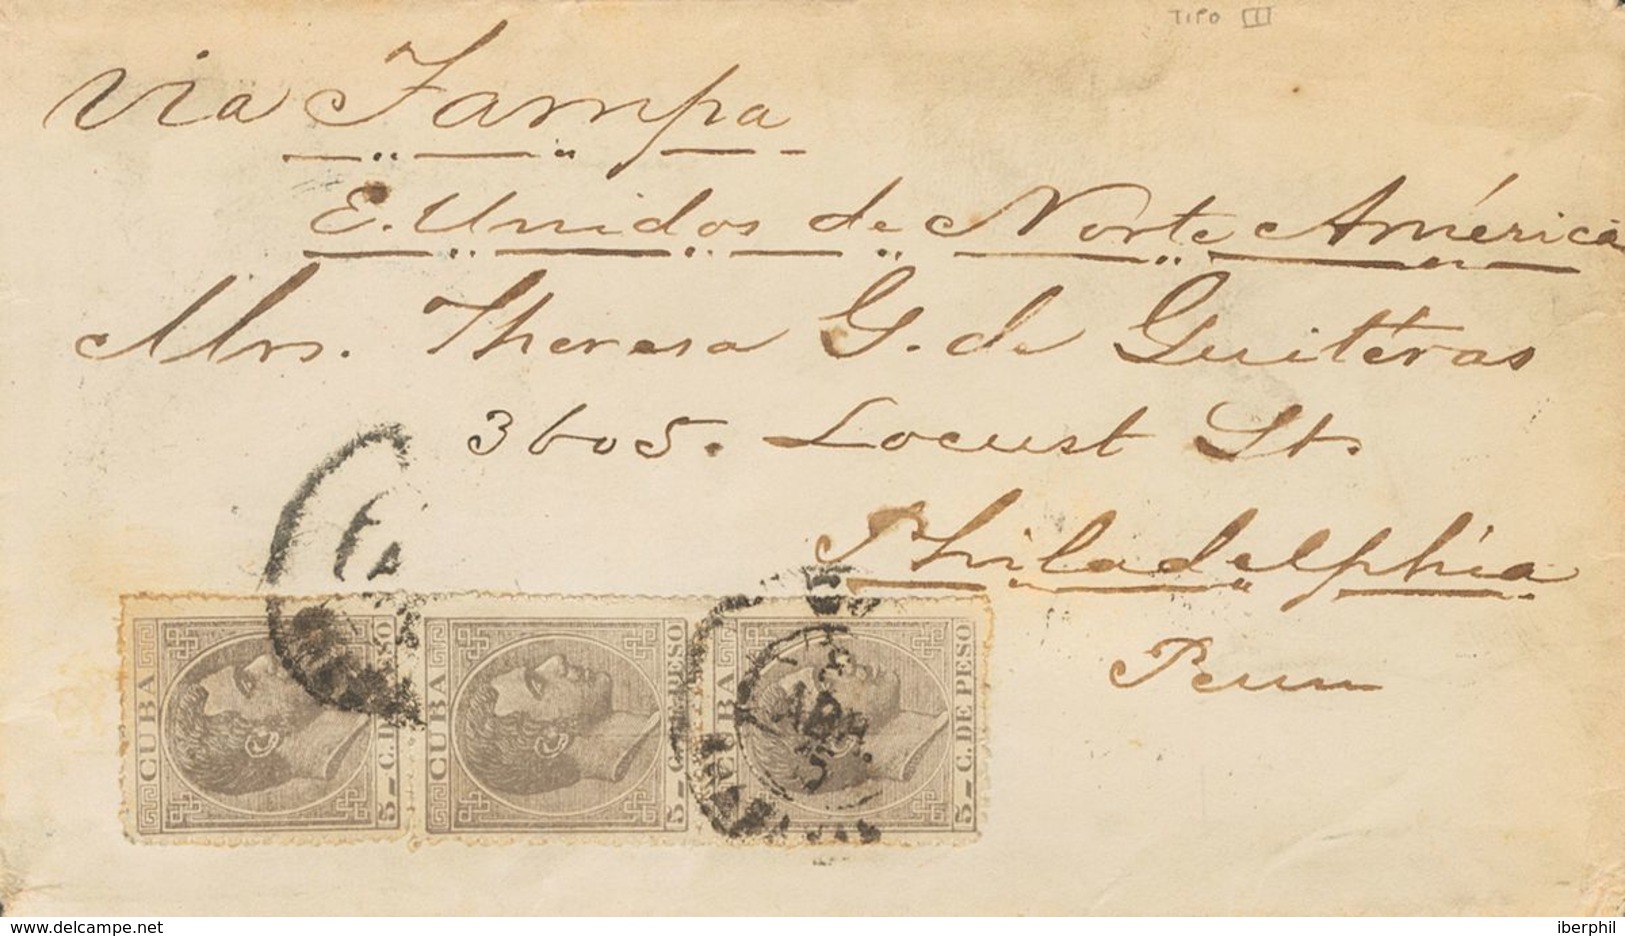 TIPO III
Via Tampa
E. Unidos de Norte América
Mrs. Theresa G. de Guitéras
3605. Locust St.
Philadelphia
Penn
CUBA 5 C. DE PESO
CUBA 5 C. DE PESO
CUBA 5 C. DE PESO
delcampe.net
iberphil